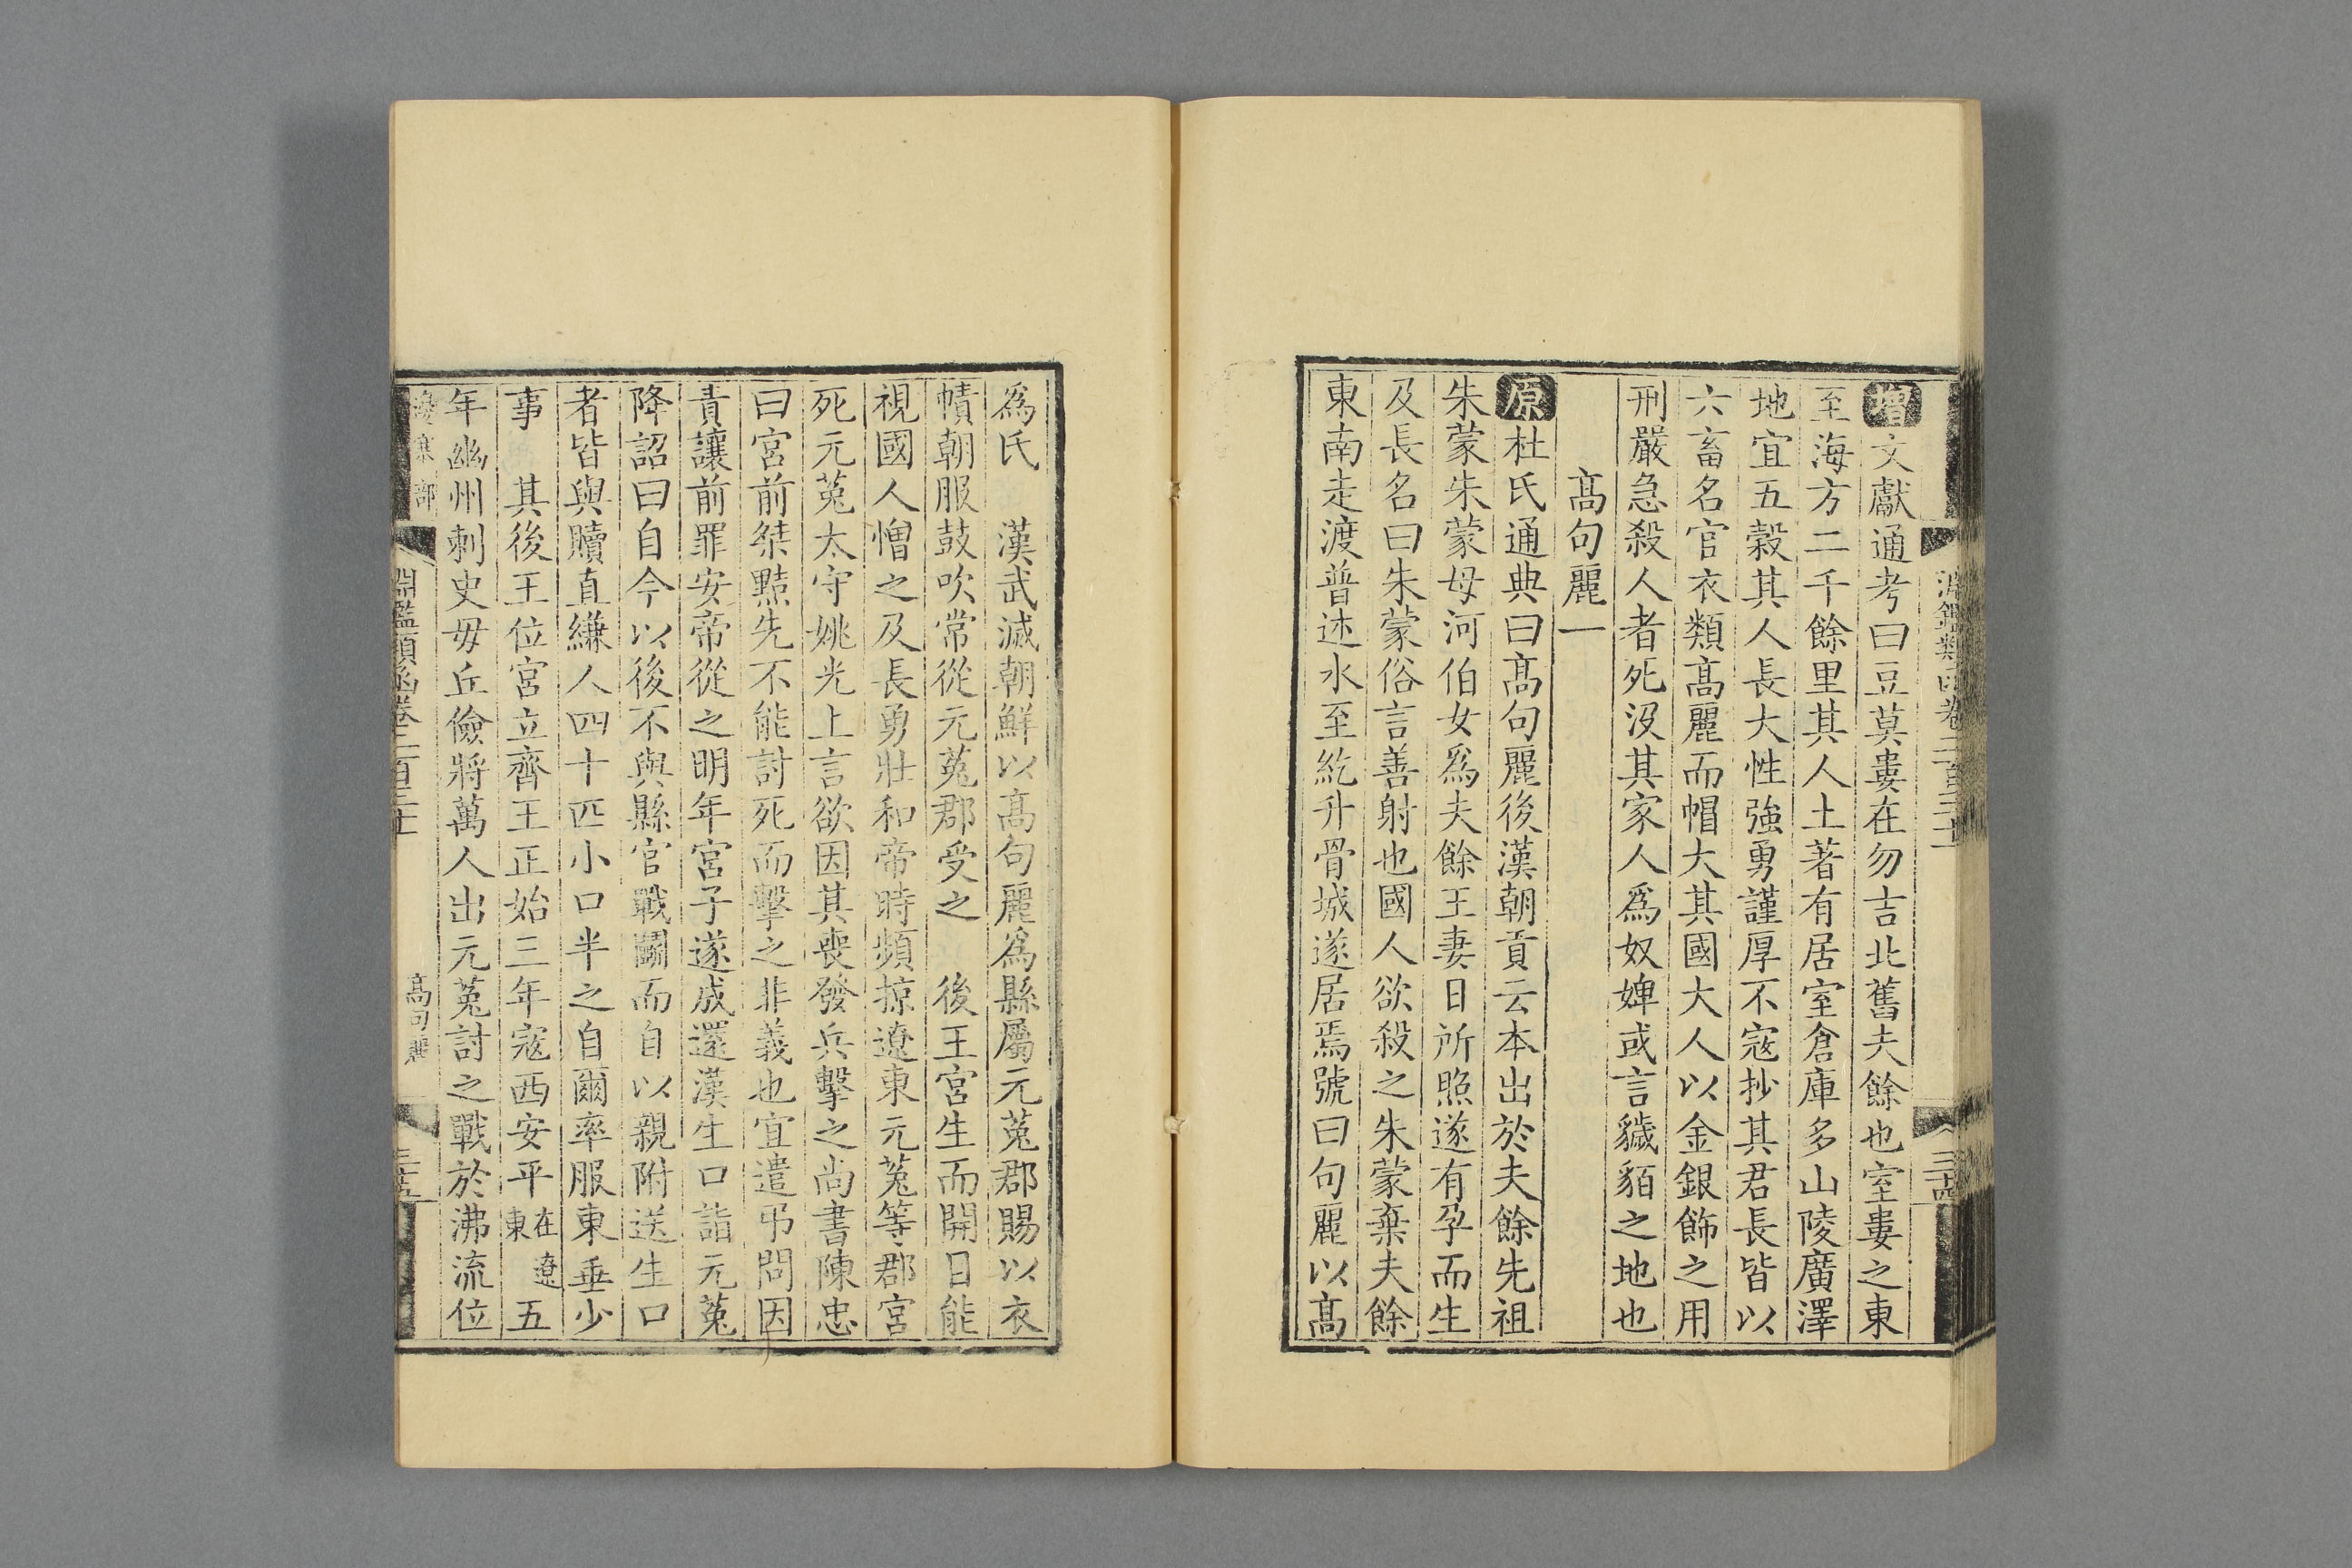 增文獻通考曰豆莫婁在勿吉北舊夫餘也室婁之東
至海方二千餘里其人土著有居室倉庫多山陵廣澤
地宜五穀其人長大性強勇謹厚不寇抄其君長皆以
六畜名官衣類髙麗而帽大其國大人以金銀飾之用
刑嚴急殺人者死沒其家人爲奴婢或言穢貊之地也
髙句麗一
原杜氏通典曰髙句麗後漢朝貢云本出於夫餘先祖
朱蒙朱蒙母河伯女爲夫餘王妻日所照遂有孕而生
及長名曰朱蒙俗言善射也國人欲殺之朱蒙棄夫餘
東南走渡普述水至紇升骨城遂居焉號曰句麗以髙
爲氏 漢武滅朝鮮以髙句麗爲縣屬元菟郡賜以衣
幘朝服鼓吹常從元菟郡受之 後王宮生而開目能
視國人憎之及長勇壯和帝時頻掠遼東元菟等郡宮
死元菟太守姚光上言欲因其喪發兵擊之尚書陳忠
曰宮前桀黠先不能討死而擊之非義也宜遣弔問因
責讓前罪安帝從之明年宮子遂成還漢生口詣元菟
降詔曰自今以後不與縣官戰鬭而自以親附送生口
者皆與贖直縑人四十匹小口半之自爾率服東垂少
事 其後王位宮立齊王正始三年寇西安平在遼東五
年幽州刺史毋丘儉將萬人出元菟討之戰於沸流位
邊塞部 淵鑑類函卷二百三十一 髙句麗 三十五